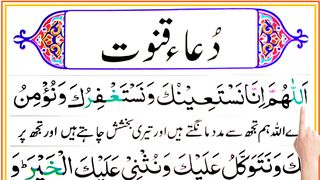 دُعاء قنوت
اَللّٰهُمَّ اِنَّا نَسْتَعِيْنُكَ وَنَسْتَغْفِرُكَ وَنُؤْمِنُ
اے اللہ ہم تجھ سے مدد مانگتے ہیں اور تیری بخشش چاہتے ہیں اور تجھ پر
وَنَتَوَكَّلُ عَلَيْكَ وَنُثْنِيْ عَلَيْكَ الْخَيْرَ